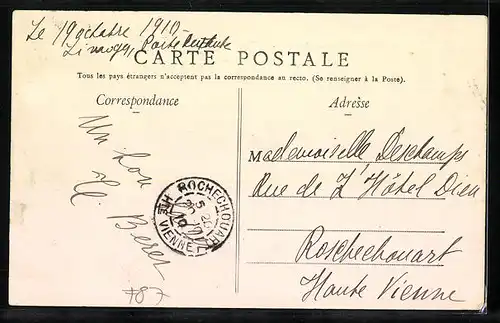 Le 19 octobre 1910
Limoges, Poste
CARTE POSTALE
Tous les pays étrangers n'acceptent pas la correspondance au recto. (Se renseigner à la Poste).
Correspondance
Adresse
Un bon
Mademoiselle Deschamps
Rue de L'Hôtel Dieu
Roschechouart
Haute Vienne
ROCHECHOUART
HTE VIENNE